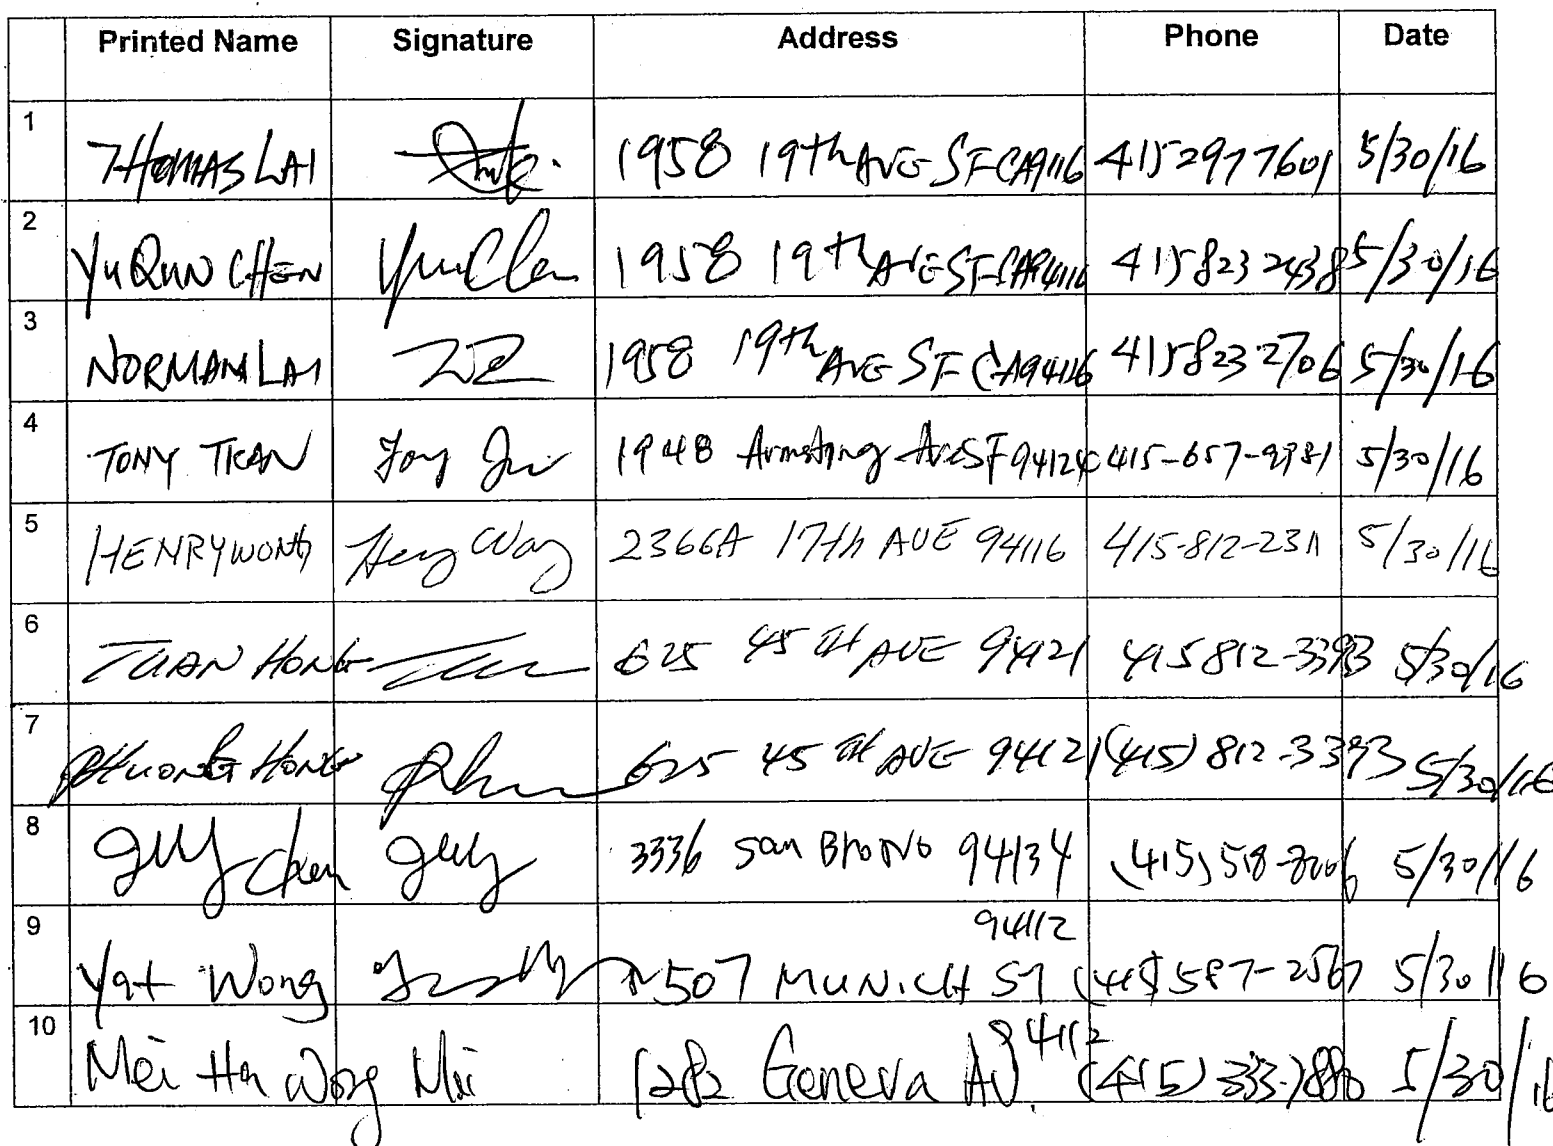 Printed Name Signature Address Phone Date
1 THOMAS LAI 1958 19th AVE SF CA9116 4152977601 5/30/16
2 YUQUN CHEN 1958 19th AVE SF CA94116 4158232438 5/30/16
3 NORMAN LAI 1958 19th AVE SF CA94116 4158232706 5/30/16
4 TONY TRAN 1948 Armstrong Ave SF 94124 415-657-9981 5/30/16
5 HENRY WONG 2366A 17th AVE 94116 415-812-2311 5/30/16
6 TUAN HONG 625 45TH AVE 94121 415 812-3393 5/30/16
7 PHUONG HONG 625 45TH AVE 94121 (415) 812-3393 5/30/16
8 guy chen guy 3336 San Bruno 94134 (415) 518- 5/30/16
94112
9 Yat Wong 507 MUNICH ST (415 587-2567 5/30/16
94112
10 Mei Ha Wong Mei 1282 Geneva AV. (415) 5/30/16